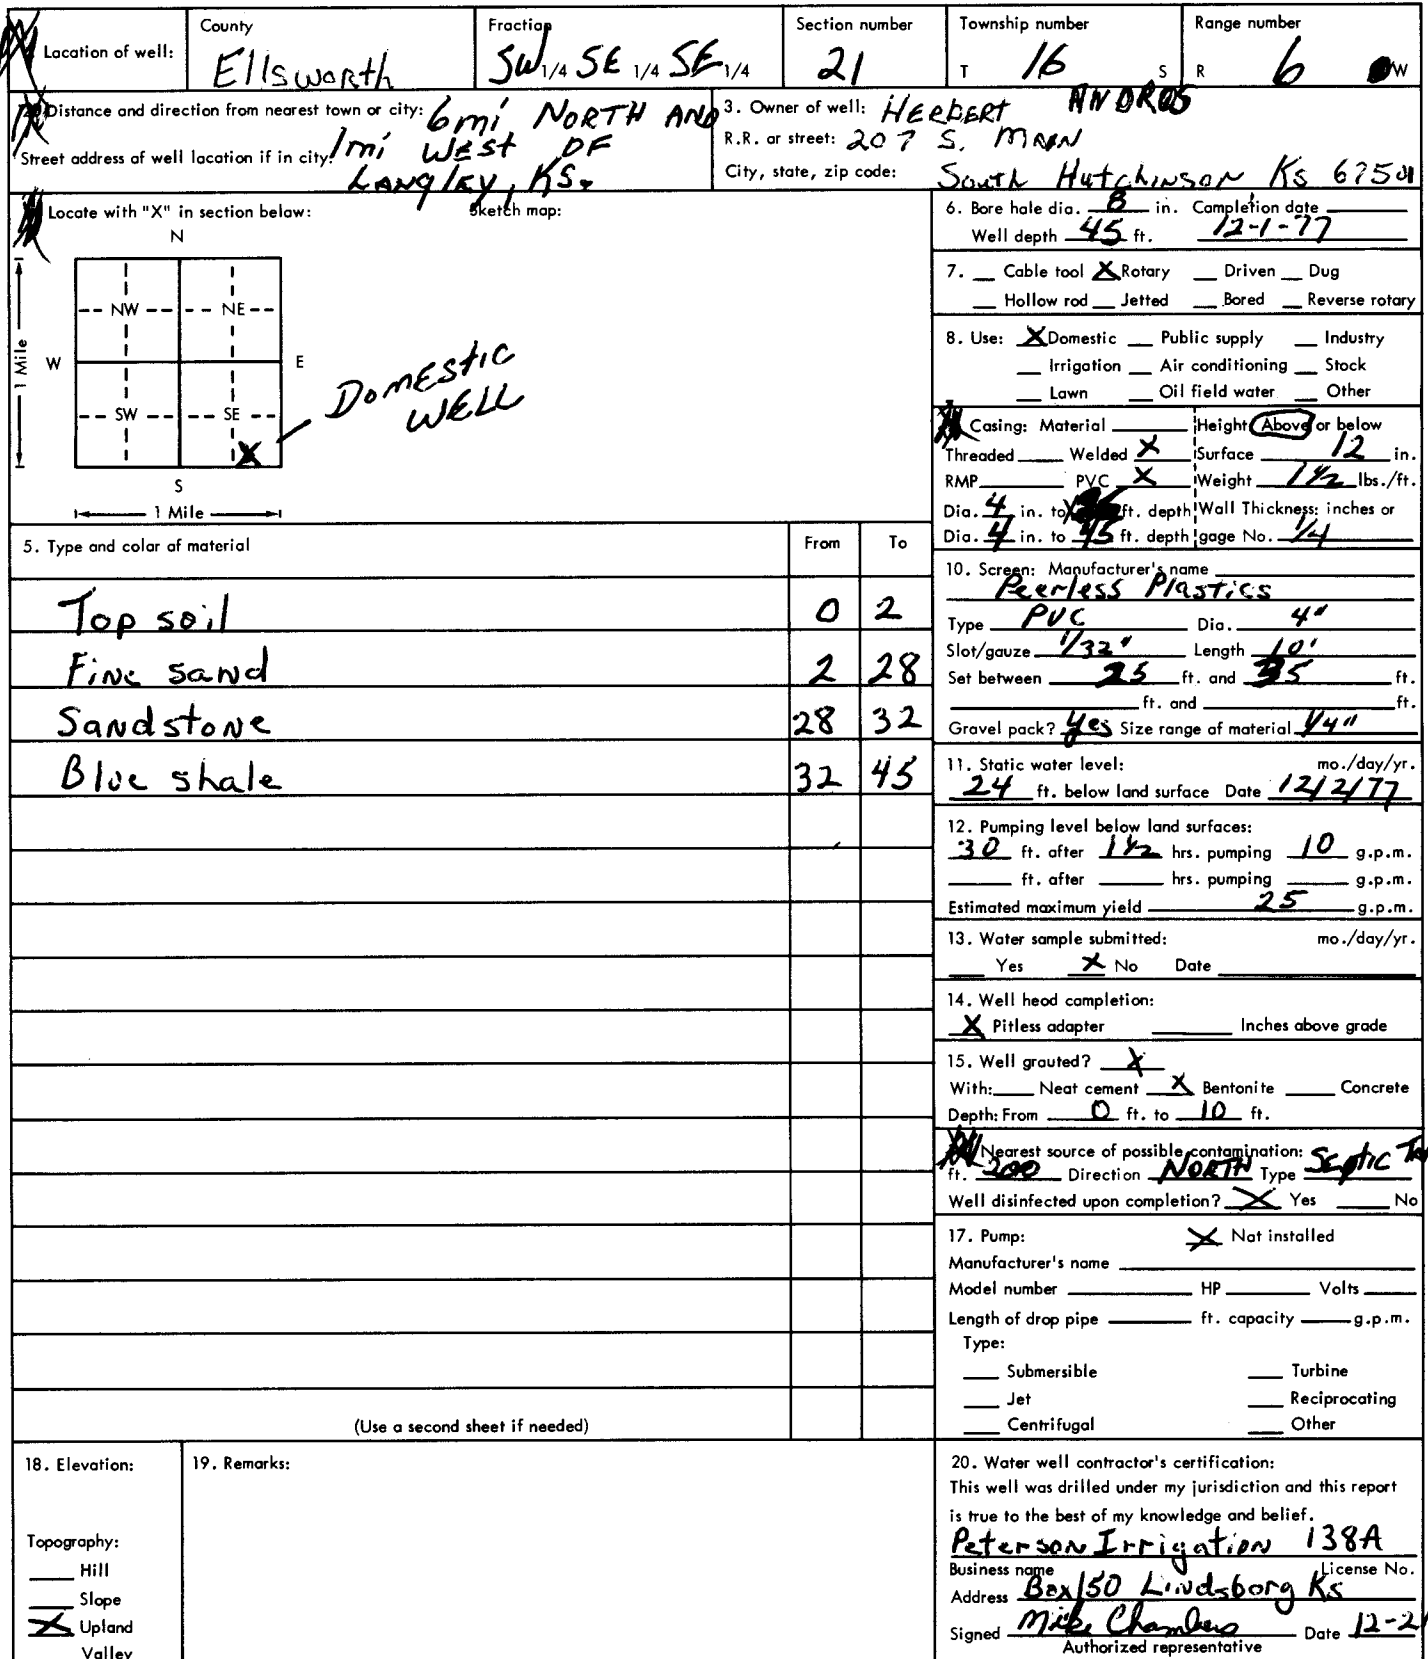 Location of well:
County
Ellsworth
Fraction
SW 1/4 SE 1/4 SE 1/4
Section number
21
Township number
T 16 S
Range number
R 6 W
Distance and direction from nearest town or city: 6 mi NORTH AND
1 mi WEST OF
Street address of well location if in city:
LANGLEY, KS.
3. Owner of well: HERBERT ANDROS
R.R. or street: 207 S. MAIN
City, state, zip code: South Hutchinson Ks 67501
Locate with "X" in section below:
Sketch map:
N
NW NE
W E
1 Mile
SW SE
X
S
1 Mile
DOMESTIC
WELL
5. Type and color of material From To
Top soil 0 2
Fine sand 2 28
Sandstone 28 32
Blue shale 32 45
(Use a second sheet if needed)
6. Bore hole dia. 8 in. Completion date
Well depth 45 ft. 12-1-77
7. Cable tool X Rotary Driven Dug
Hollow rod Jetted Bored Reverse rotary
8. Use: X Domestic Public supply Industry
Irrigation Air conditioning Stock
Lawn Oil field water Other
Casing: Material Height: Above or below
Threaded Welded X Surface 12 in.
RMP PVC X Weight 1 1/2 lbs./ft.
Dia. 4 in. to ft. depth Wall Thickness: inches or
Dia. 4 in. to 45 ft. depth gage No. 1/4
10. Screen: Manufacturer's name
Peerless Plastics
Type PVC Dia. 4"
Slot/gauze 1/32" Length 10'
Set between 25 ft. and 35 ft.
ft. and ft.
Gravel pack? yes Size range of material 1/4"
11. Static water level: mo./day/yr.
24 ft. below land surface Date 12/2/77
12. Pumping level below land surfaces:
30 ft. after 1 1/2 hrs. pumping 10 g.p.m.
ft. after hrs. pumping g.p.m.
Estimated maximum yield 25 g.p.m.
13. Water sample submitted: mo./day/yr.
Yes X No Date
14. Well head completion:
X Pitless adapter Inches above grade
15. Well grouted? X
With: Neat cement X Bentonite Concrete
Depth: From 0 ft. to 10 ft.
Nearest source of possible contamination:
ft. 200 Direction NORTH Type Septic
Well disinfected upon completion? X Yes No
17. Pump: X Not installed
Manufacturer's name
Model number HP Volts
Length of drop pipe ft. capacity g.p.m.
Type:
Submersible Turbine
Jet Reciprocating
Centrifugal Other
18. Elevation:
Topography:
Hill
Slope
X Upland
Valley
19. Remarks:
20. Water well contractor's certification:
This well was drilled under my jurisdiction and this report
is true to the best of my knowledge and belief.
Peterson Irrigation 138A
Business name License No.
Address Box 150 Lindsborg Ks
Signed Mike Chambers Date 12-2
Authorized representative